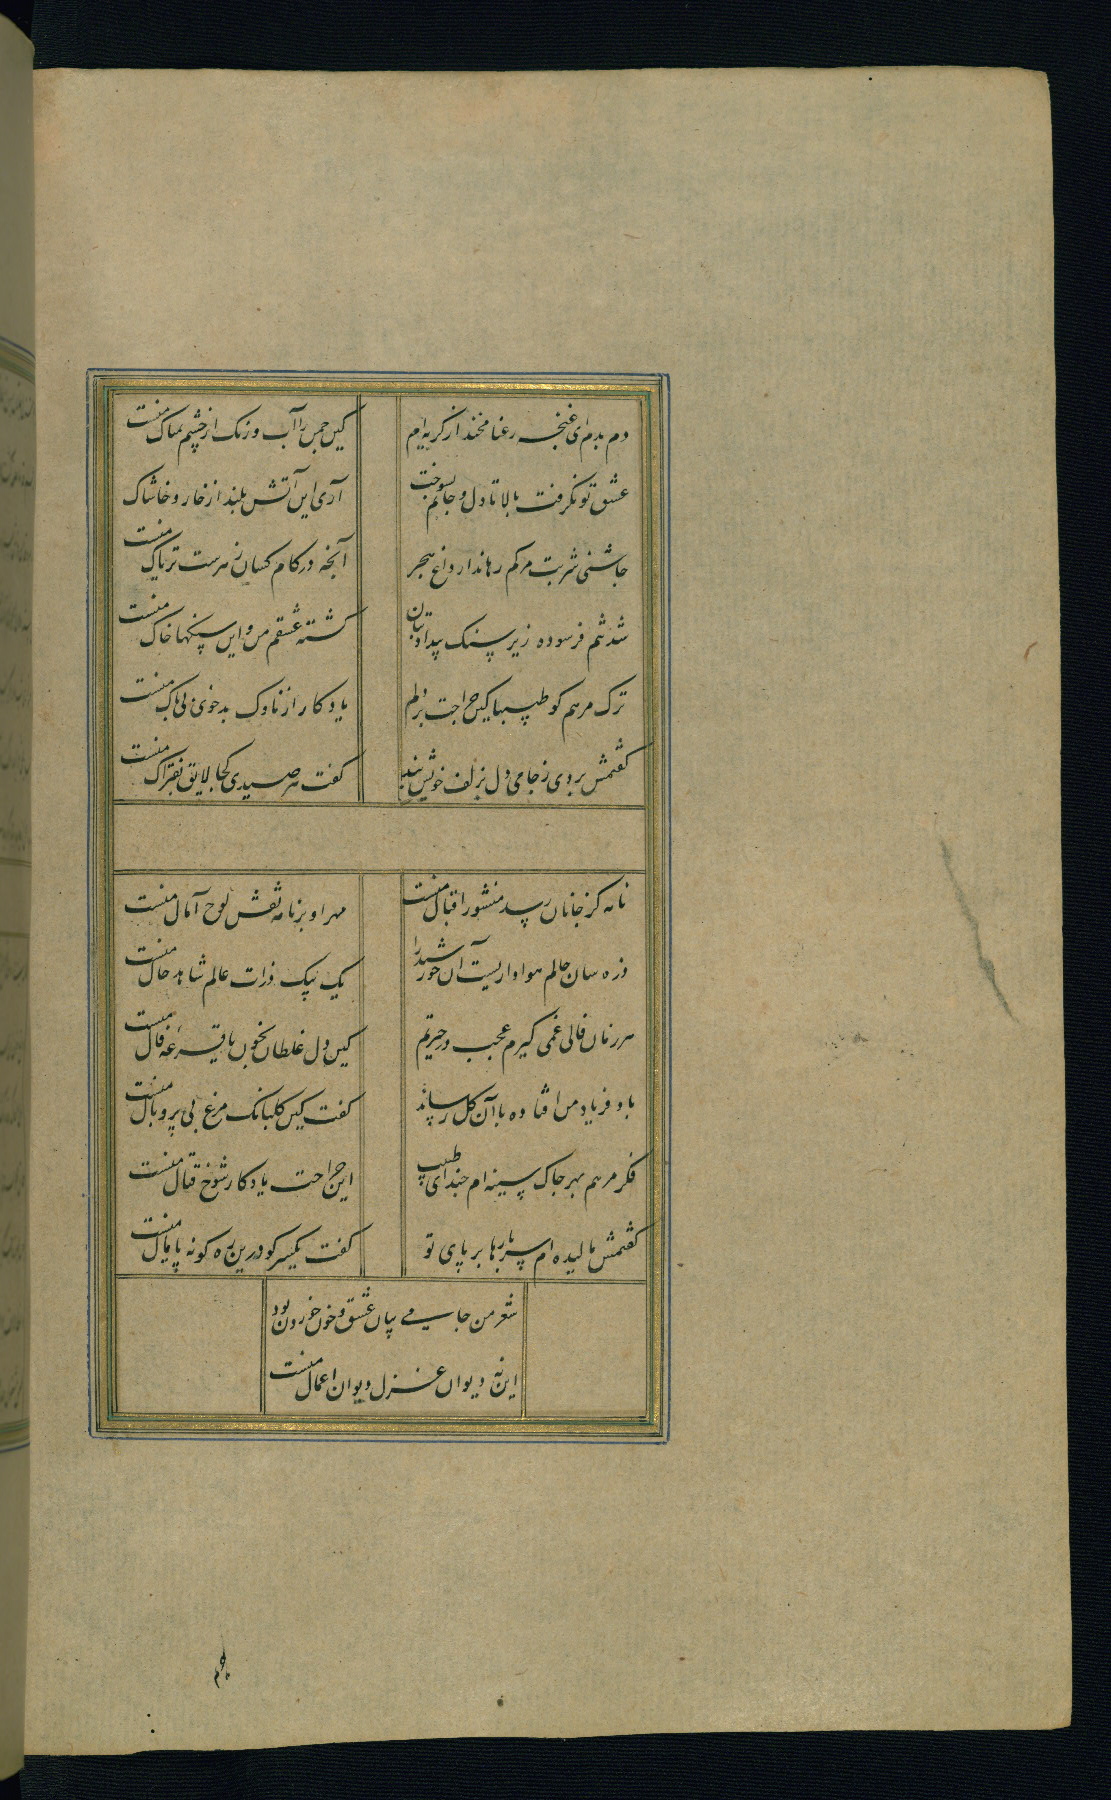 دم بدم ای غنچه رعنا مخند از کریه‌ام کین چمن را آب و رنک از چشم نمناک منست
عشق تو نکرفت بالا تا دل و جانم بسوخت آری این آتش بلند از خار و خاشاک منست
چاشنی شربت مرکم رهاند از داغ هجر آنچه در کام کسان زهرست تریاک منست
شد تنم فرسوده زیر سنک بیداد بتان کشته عشقم من و این سنکها خاک منست
ترک مرهم کو طبیبا کین جراحت بر دلم یادکار از ناوک بدخوی بی باک منست
کفتمش بردی ز جای دل بزلف خویش بند کفت هر صیدی کجا لایق بفتراک منست
نامه کز جانان رسد منشور اقبال منست مهر او بر نامه نقش لوح آمال منست
ذره سان حالم هوا داریست آن خورشید را یک بیک ذرات عالم شاهد حال منست
هر زمان فالی غمی کیرم عجب در حیرتم کین دل غلطان بخون یا قرعه فال منست
باد فریاد من افتاده با آن کل رساند کفت کین کلبانک مرغ بی پر و بال منست
فکر مرهم بهر چاک سینه‌ام چند ای طبیب این جراحت یادکار شوخ قتال منست
کفتمش مالیده‌ام سر بارها بر پای تو کفت یکسر کو درین ره کو نه پامال منست
شعر من جامی بیان عشق و خون خوردن بود
این نه دیوان غزل دیوان اعمال منست